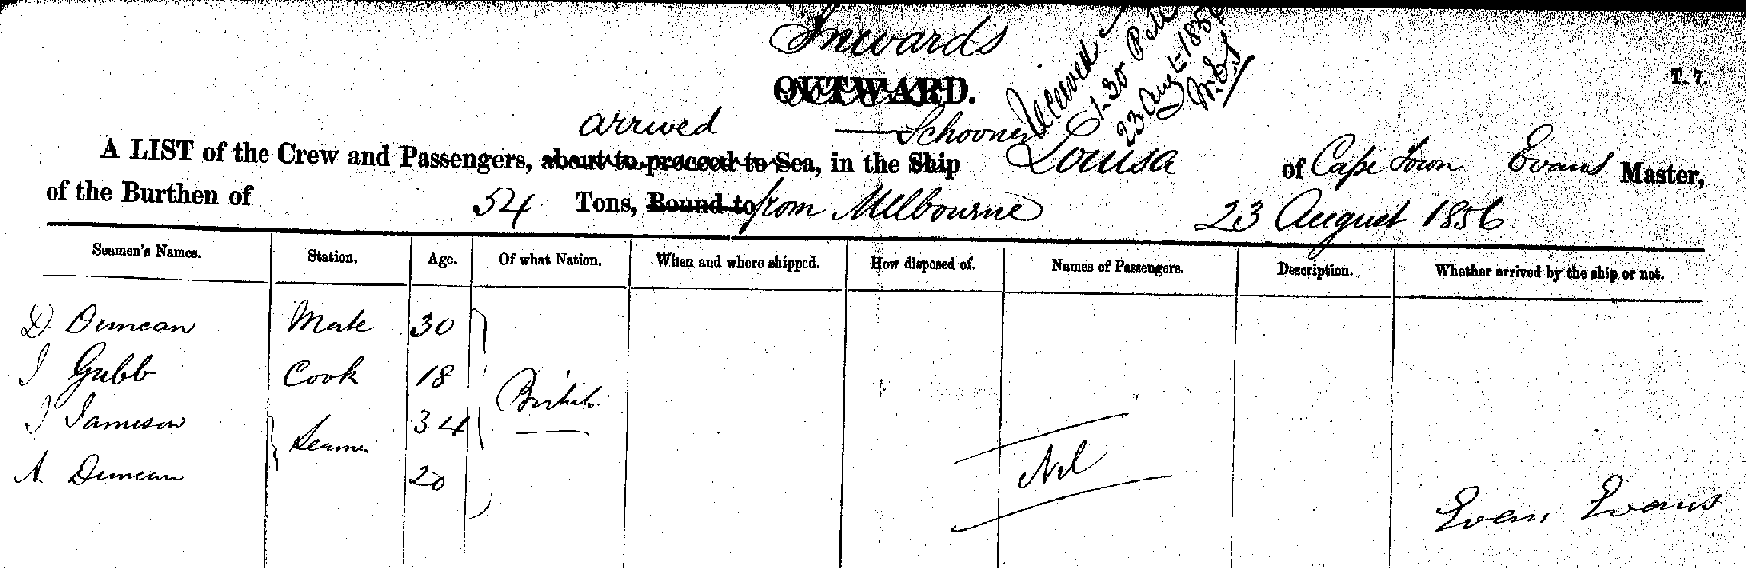 Inwards
OUTWARD.
T. 7.
Received
1.30 P.M.
23 Augt 1856
arrived Schooner
A LIST of the Crew and Passengers, about to proceed to Sea, in the Ship Louisa of Cape Town Evans Master,
of the Burthen of 54 Tons, Bound to from Melbourne 23 August 1856
Seamen's Names. Station. Age. Of what Nation. When and where shipped. How disposed of. Names of Passengers. Description. Whether arrived by the ship or not.
D Duncan Mate 30
J Gubb Cook 18
British
J Jamieson 34
Seamen
Nil
A Duncan 20
Evan Evans